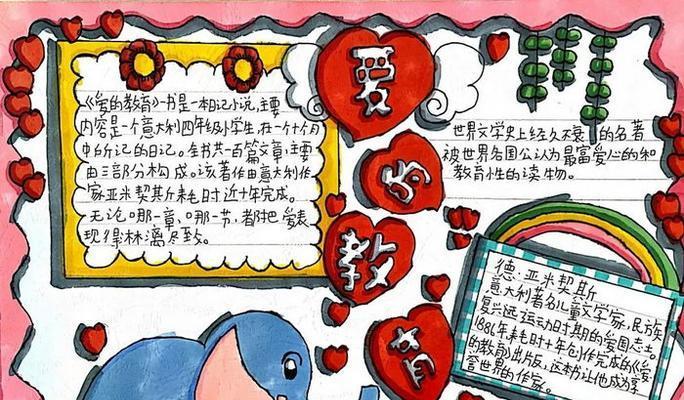 爱的教育
《爱的教育》书是一本日记小说,主要
内容是一个意大利四年级小学生,在一个十个月
中所记的日记。全书共一百篇文章,主要
由三部分构成。该著作由意大利作
家亚米契斯耗时近十年完成。
无论哪一章,哪一节,都把“爱”表
现得淋漓尽致。
世界文学史上经久不衰的名著
被世界各国公认为最富爱心的和
教育性的读物。
德·亚米契斯
意大利著名儿童文学家,民族
复兴运动时期的爱国志士。
1886年耗时十年创作完成的《爱
的教育》出版,这本书让他成为享
誉世界的作家。